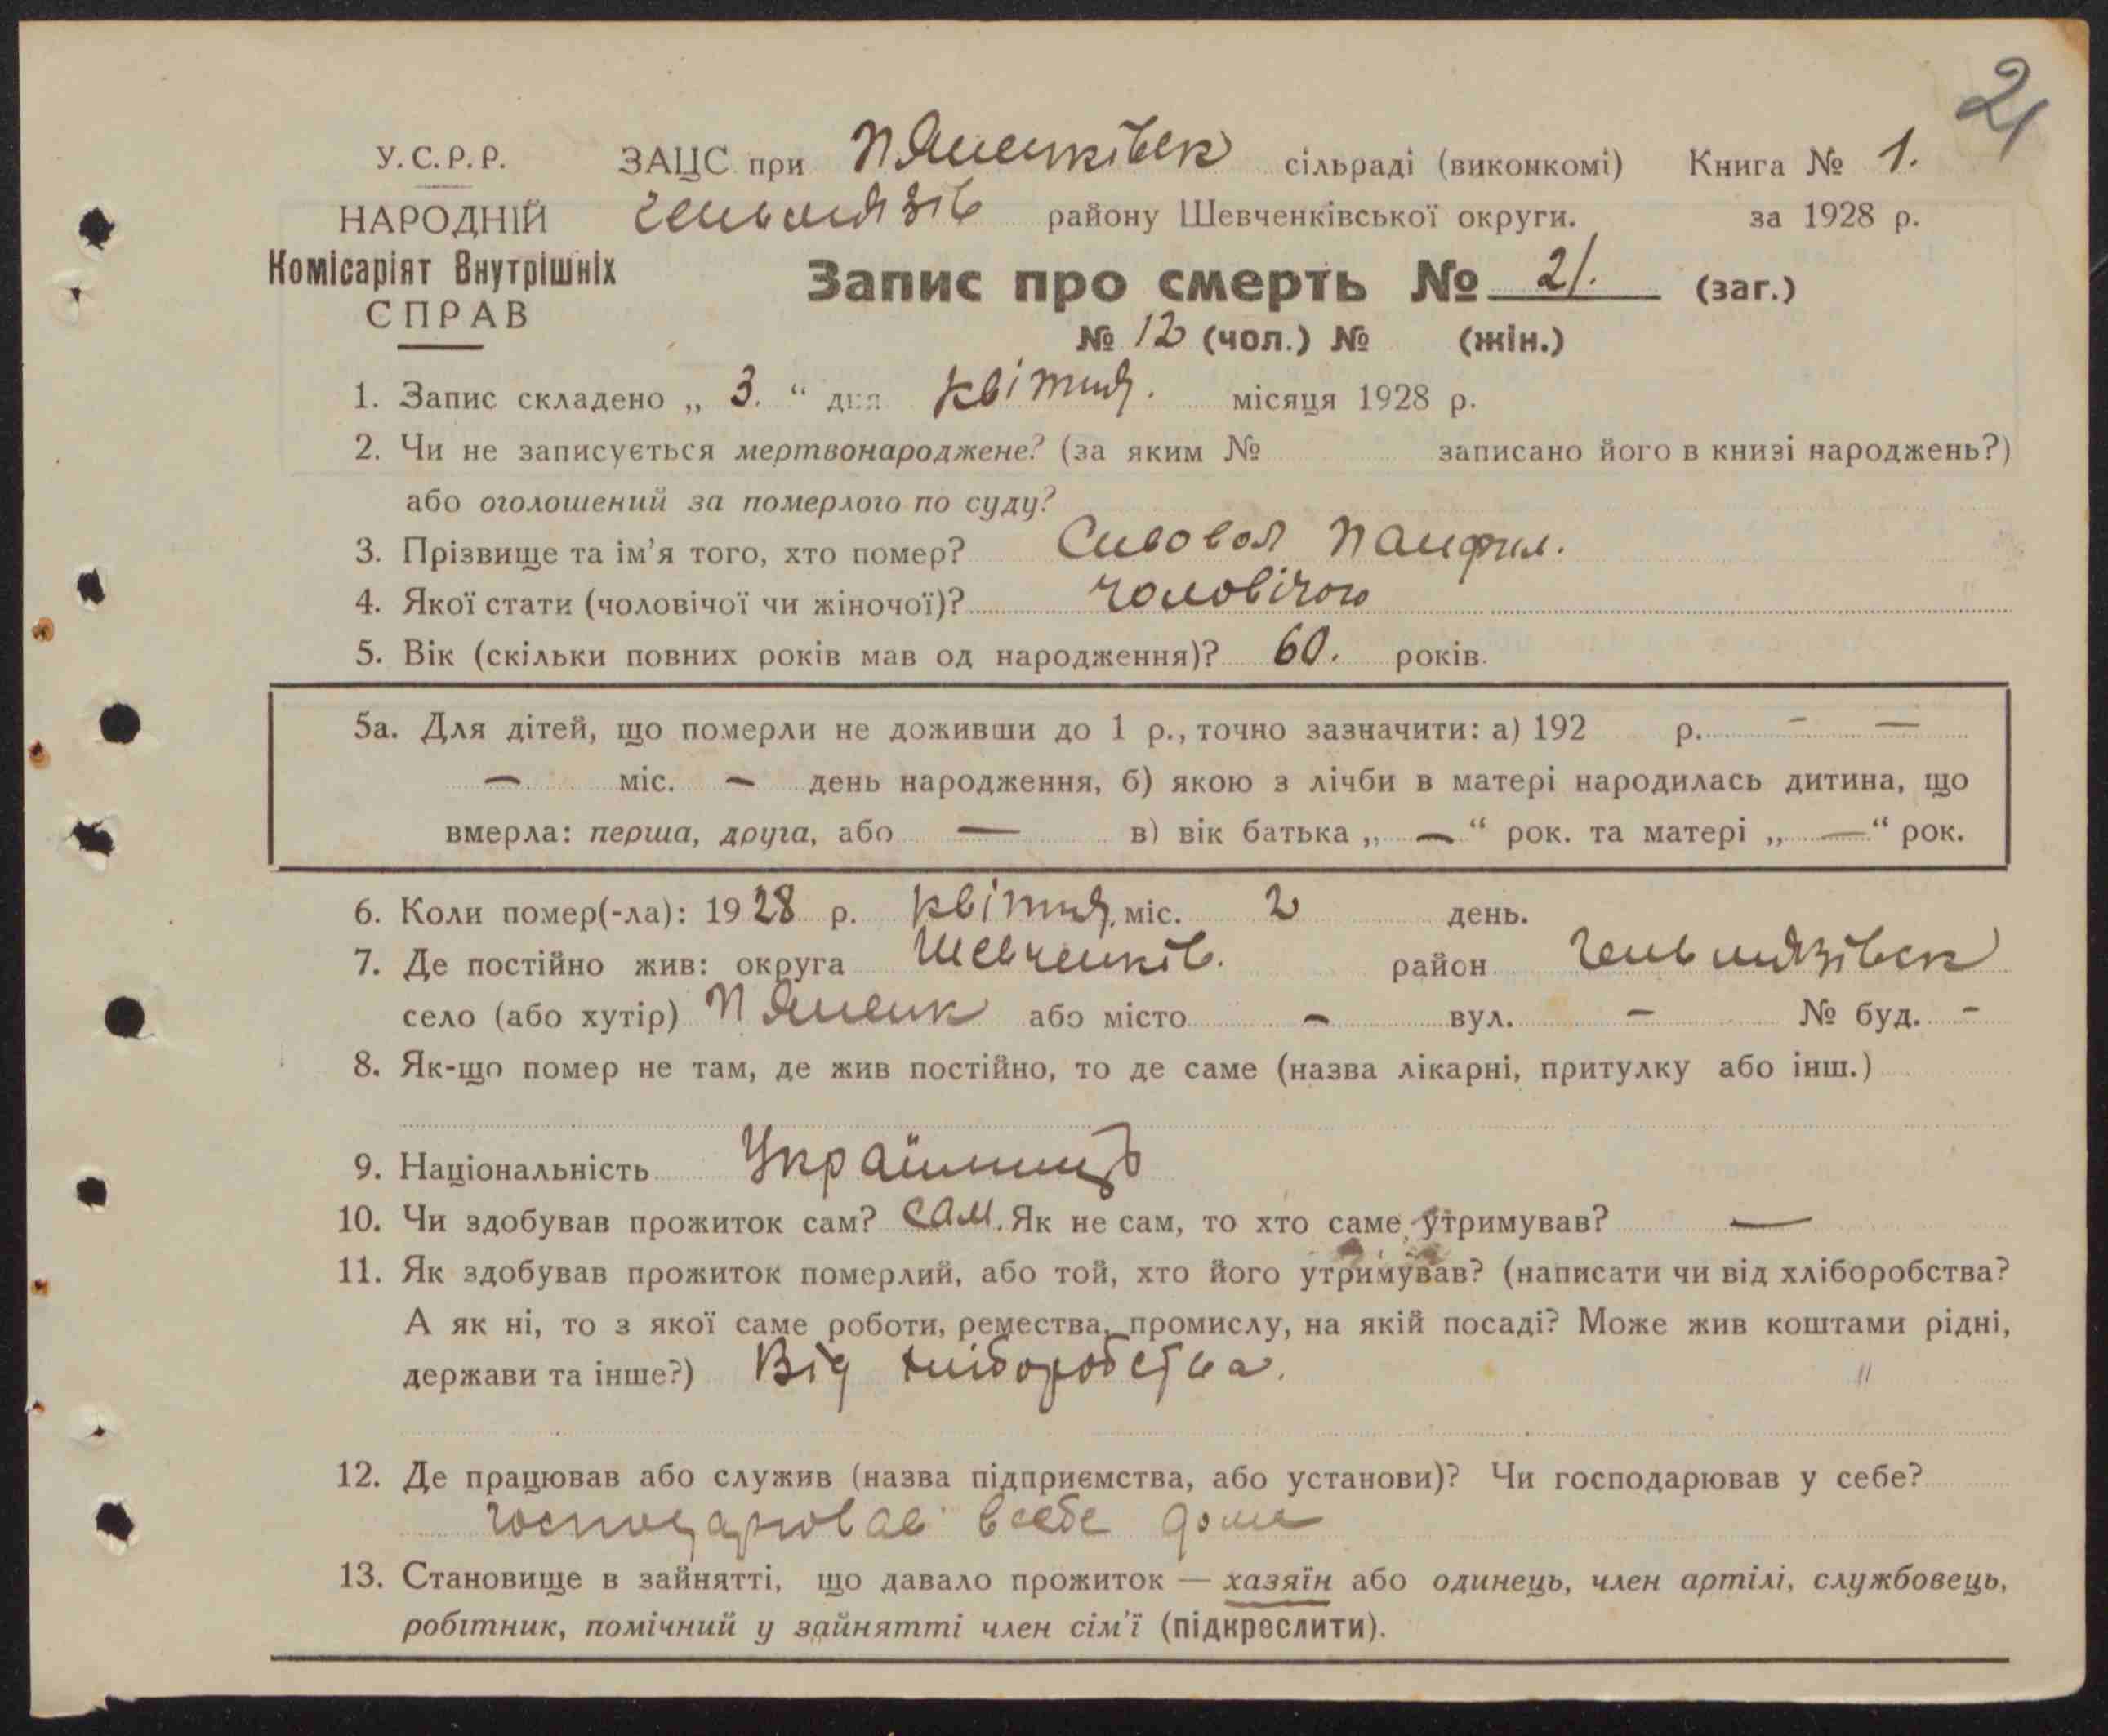 21
У.С.Р.Р. ЗАЦС при П'яшенківськ сільраді (виконкомі) Книга № 1.
НАРОДНІЙ Гельмязів району Шевченківської округи. за 1928 р.
Комісаріят Внутрішніх
СПРАВ
Запис про смерть № 21. (заг.)
№ 12 (чол.) № (жін.)
1. Запис складено „ 3. “ дня квітня. місяця 1928 р.
2. Чи не записується мертвонароджене? (за яким № записано його в книзі народжень?)
або оголошений за померлого по суду?
3. Прізвище та ім’я того, хто помер? Сивовол Панфил.
4. Якої стати (чоловічої чи жіночої)? чоловічого
5. Вік (скільки повних років мав од народження)? 60. років.
5а. Для дітей, що померли не доживши до 1 р., точно зазначити: а) 192 р. - —
— міс. — день народження, б) якою з лічби в матері народилась дитина, що
вмерла: перша, друга, або — в) вік батька „ — “ рок. та матері „ — “ рок.
6. Коли помер(-ла): 1928 р. квітня. міс. 2 день.
7. Де постійно жив: округа Шевченків. район Гельмязівськ
село (або хутір) або місто - вул. - № буд. -
8. Як-що помер не там, де жив постійно, то де саме (назва лікарні, притулку або інш.)
9. Національність Українець
10. Чи здобував прожиток сам? сам. Як не сам, то хто саме утримував? —
11. Як здобував прожиток померлий, або той, хто його утримував? (написати чи від хліборобства?
А як ні, то з якої саме роботи, ремества, промислу, на якій посаді? Може жив коштами рідні,
держави та інше?) Від хліборобства.
12. Де працював або служив (назва підприємства, або установи)? Чи господарював у себе?
господарював всебе дома
13. Становище в зайнятті, що давало прожиток — хазяїн або одинець, член артілі, службовець,
робітник, помічний у зайнятті член сім’ї (підкреслити).